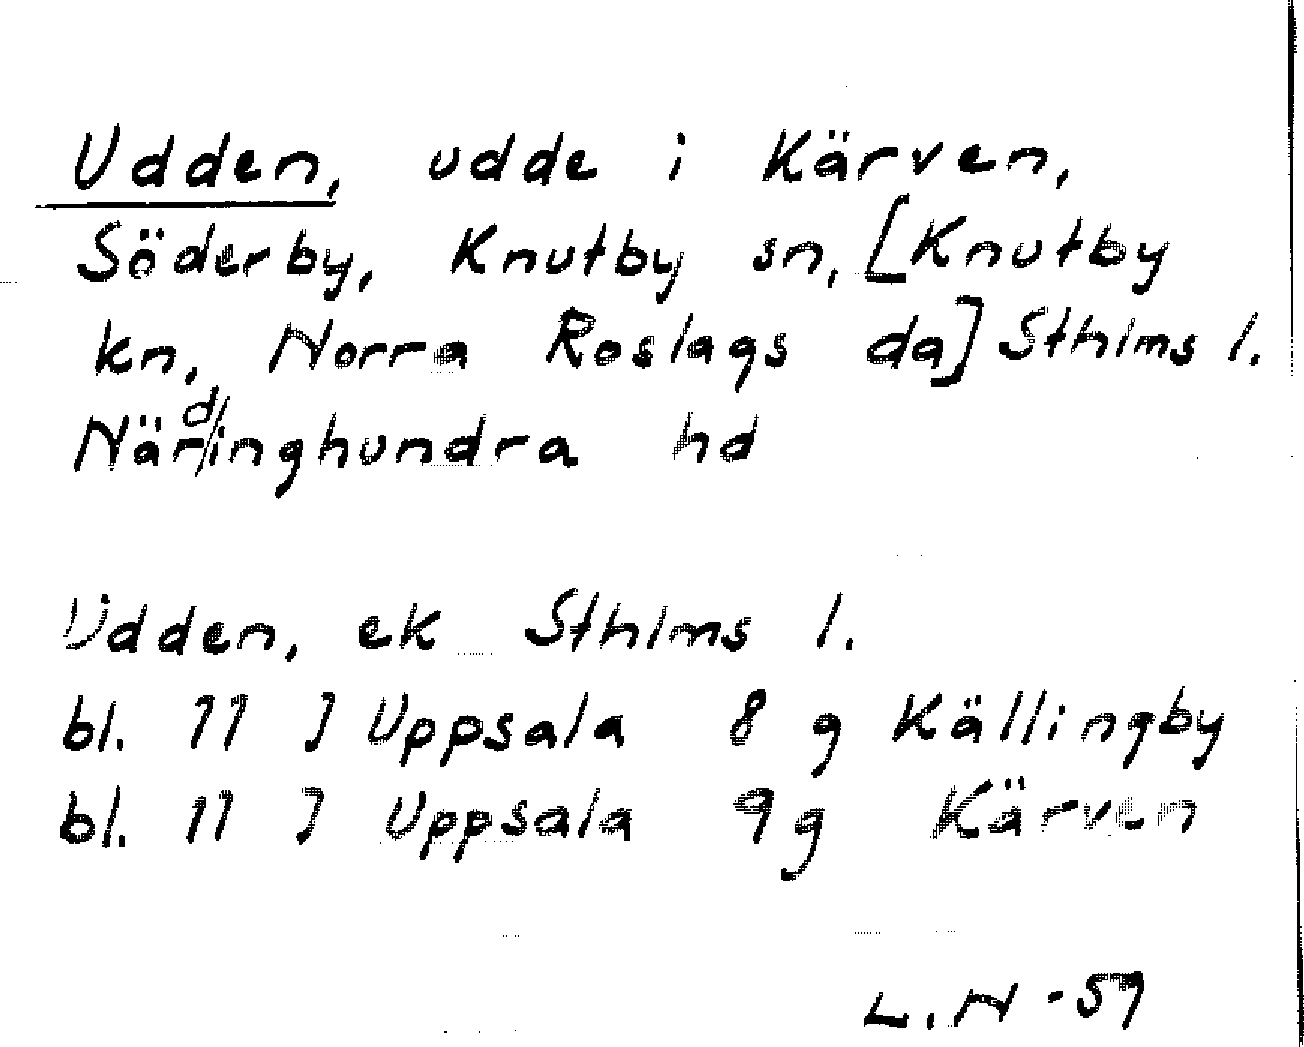 Udden, udde i Kärven,
Söderby, Knutby sn, [Knutby
kn, Norra Roslags da] Sthlms l.
Närdinghundra hd
Udden, ek Sthlms l.
bl. 11 J Uppsala 8 g Källingby
bl. 11 J Uppsala 9 g Kärven
L. N -57